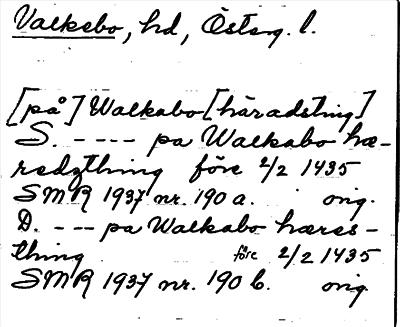 Valkebo, hd, Östsg. l.
[på] Walkabo [häradsting]
S. ---- pa Walkabo hæ-
redzthing före 2/2 1435
SMR 1937 nr. 190 a. orig.
D. --- pa Walkabo hæres-
thing före 2/2 1435
SMR 1937 nr. 190 b. orig.